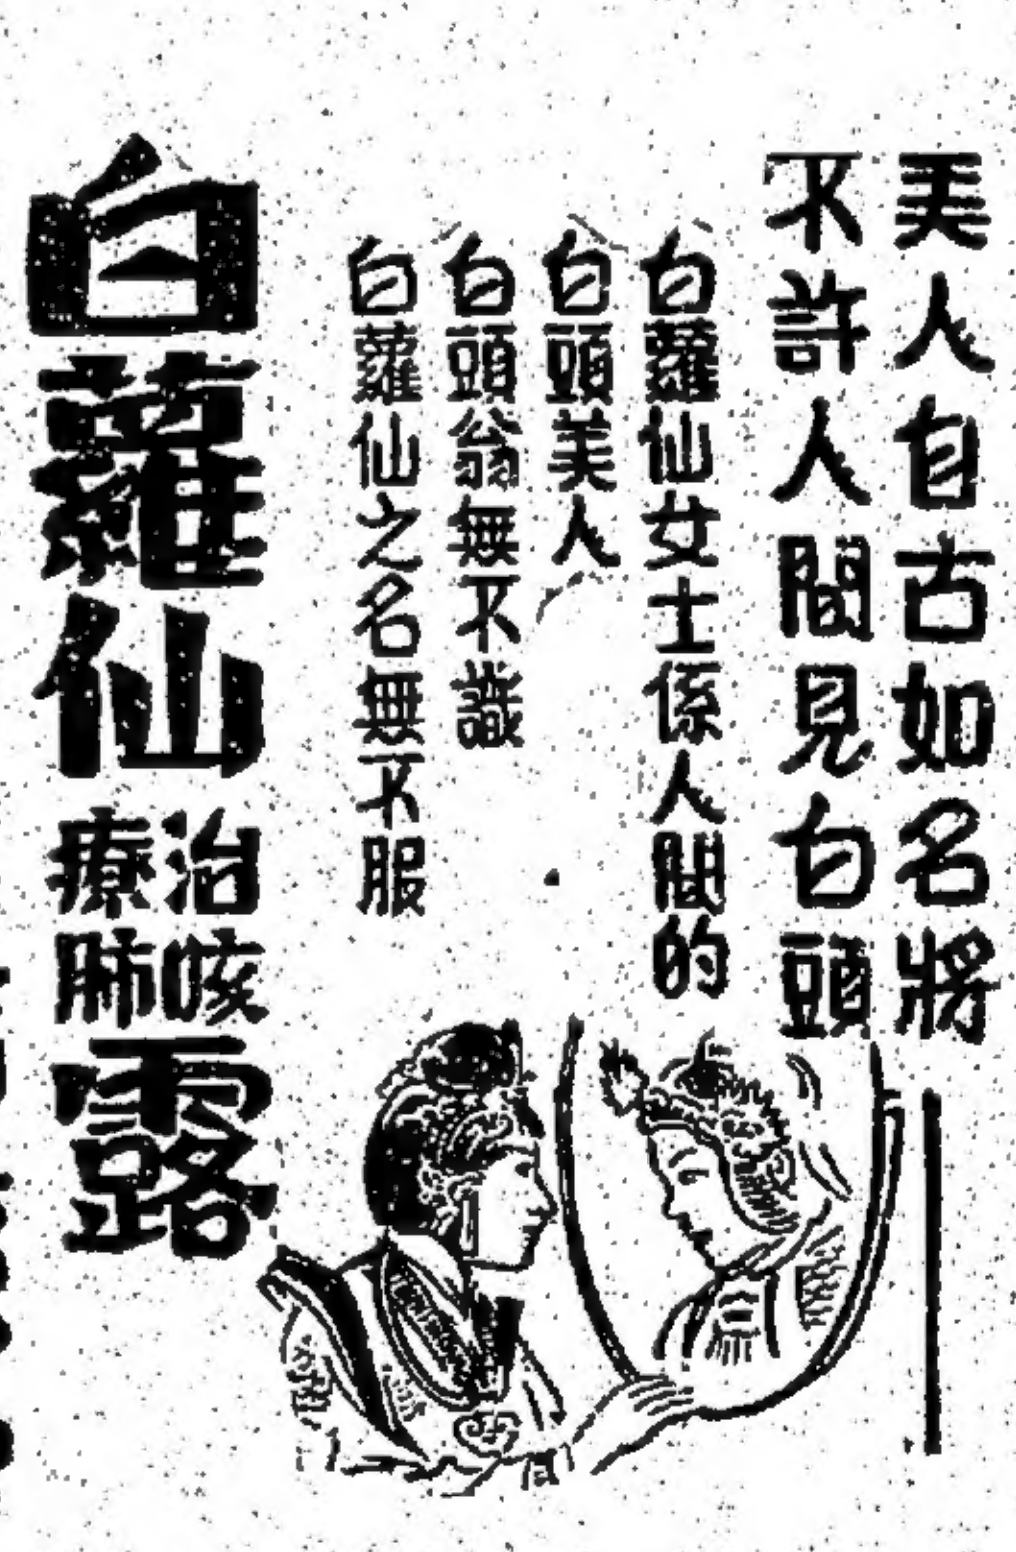 美人自古如名將
不許人間見白頭
白蘿仙女士係人間的
白頭美人
白頭翁無不識
白蘿仙之名無不服
白蘿仙治咳療肺露